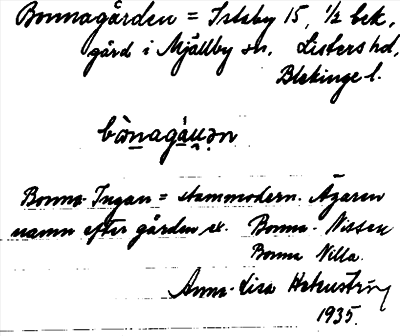 Bonnagården = Istaby 15, 1/2 bek.
gård i Mjällby sn, Listers hd,
Blekinge l.
Bonna-Ingan = stammodern. Ägaren
namn efter gården ex. Bonna-Nissen
Bonna Nilla.
Anna-Lisa
1935.